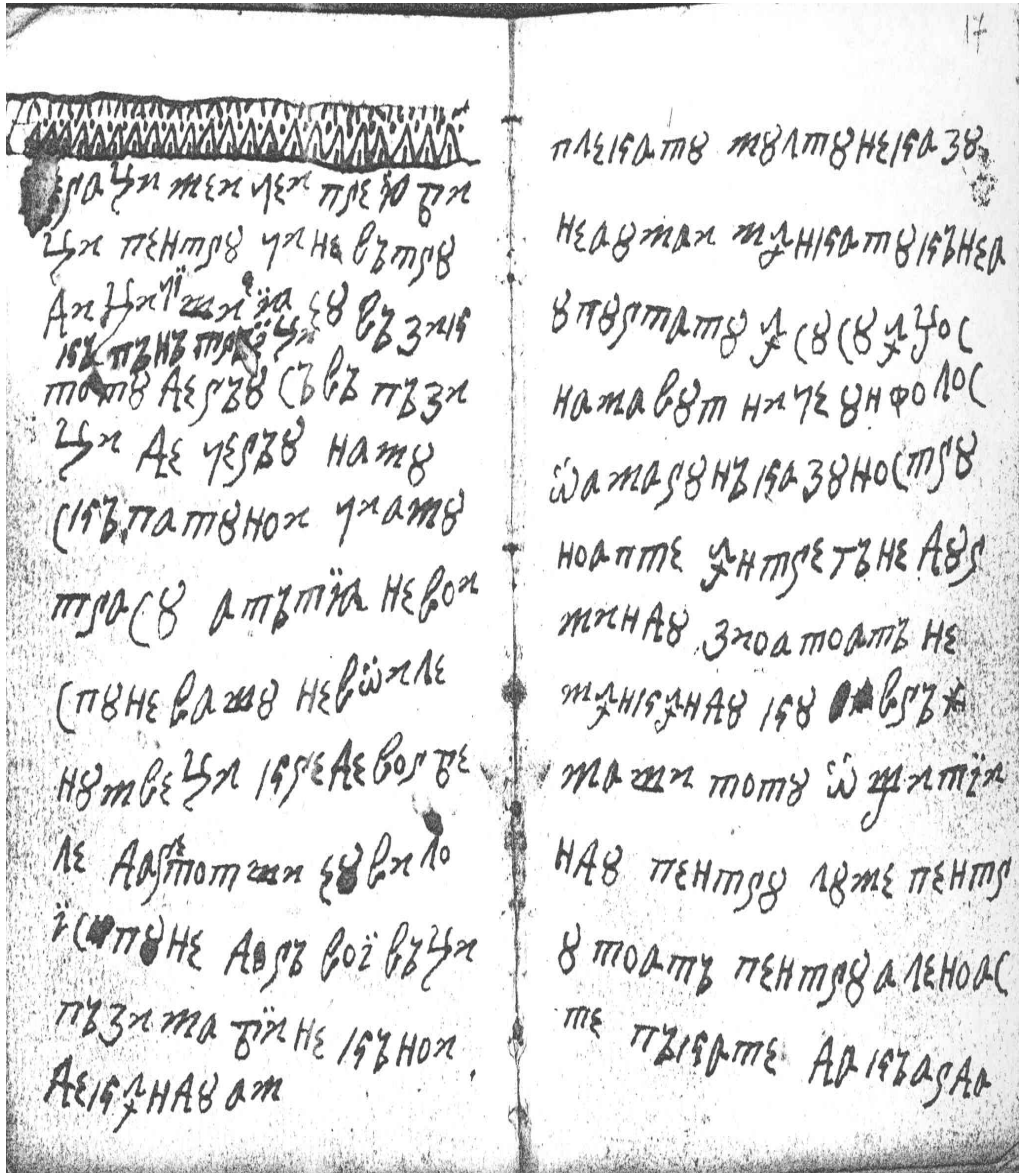 ераци меи чеи прею би
ци пентрꙋ чине вътрꙋ
дици шїꙗ еꙋ въ зик
тотꙋ дерѣꙋ съвъ пъзи
ци де черъꙋ намꙋ
скъпатꙋ нои чи амꙋ
трасꙋ атътїꙗ невои
спꙋне вамꙋ невѡиле
нꙋм веци креде ворбе
ле дар тот ши еꙋ ви ло
ї спꙋне даръ вої въци
пъзи ма бїине къ нои
декꙟндꙋ ам
17
плекатꙋ мꙋлтꙋ не казꙋ
неаꙋ маи мꙟнкатꙋ кънеа
ꙋ пꙋртатꙋ ꙟ сꙋсꙋ ꙟ џос
нам авꙋт ниче ꙋн фолос
ѡамарꙋнъ казꙋ нострꙋ
ноапте ꙟнтрегъ не дꙋр
миндꙋ зиоа тоатъ не
мꙟнкꙟндꙋ кꙋ връж
маши тотꙋ ѡ щитїи
ндꙋ пентрꙋ лꙋме пентр
ꙋ тоатъ пентрꙋ але ноас
те пъкате дакъ арда